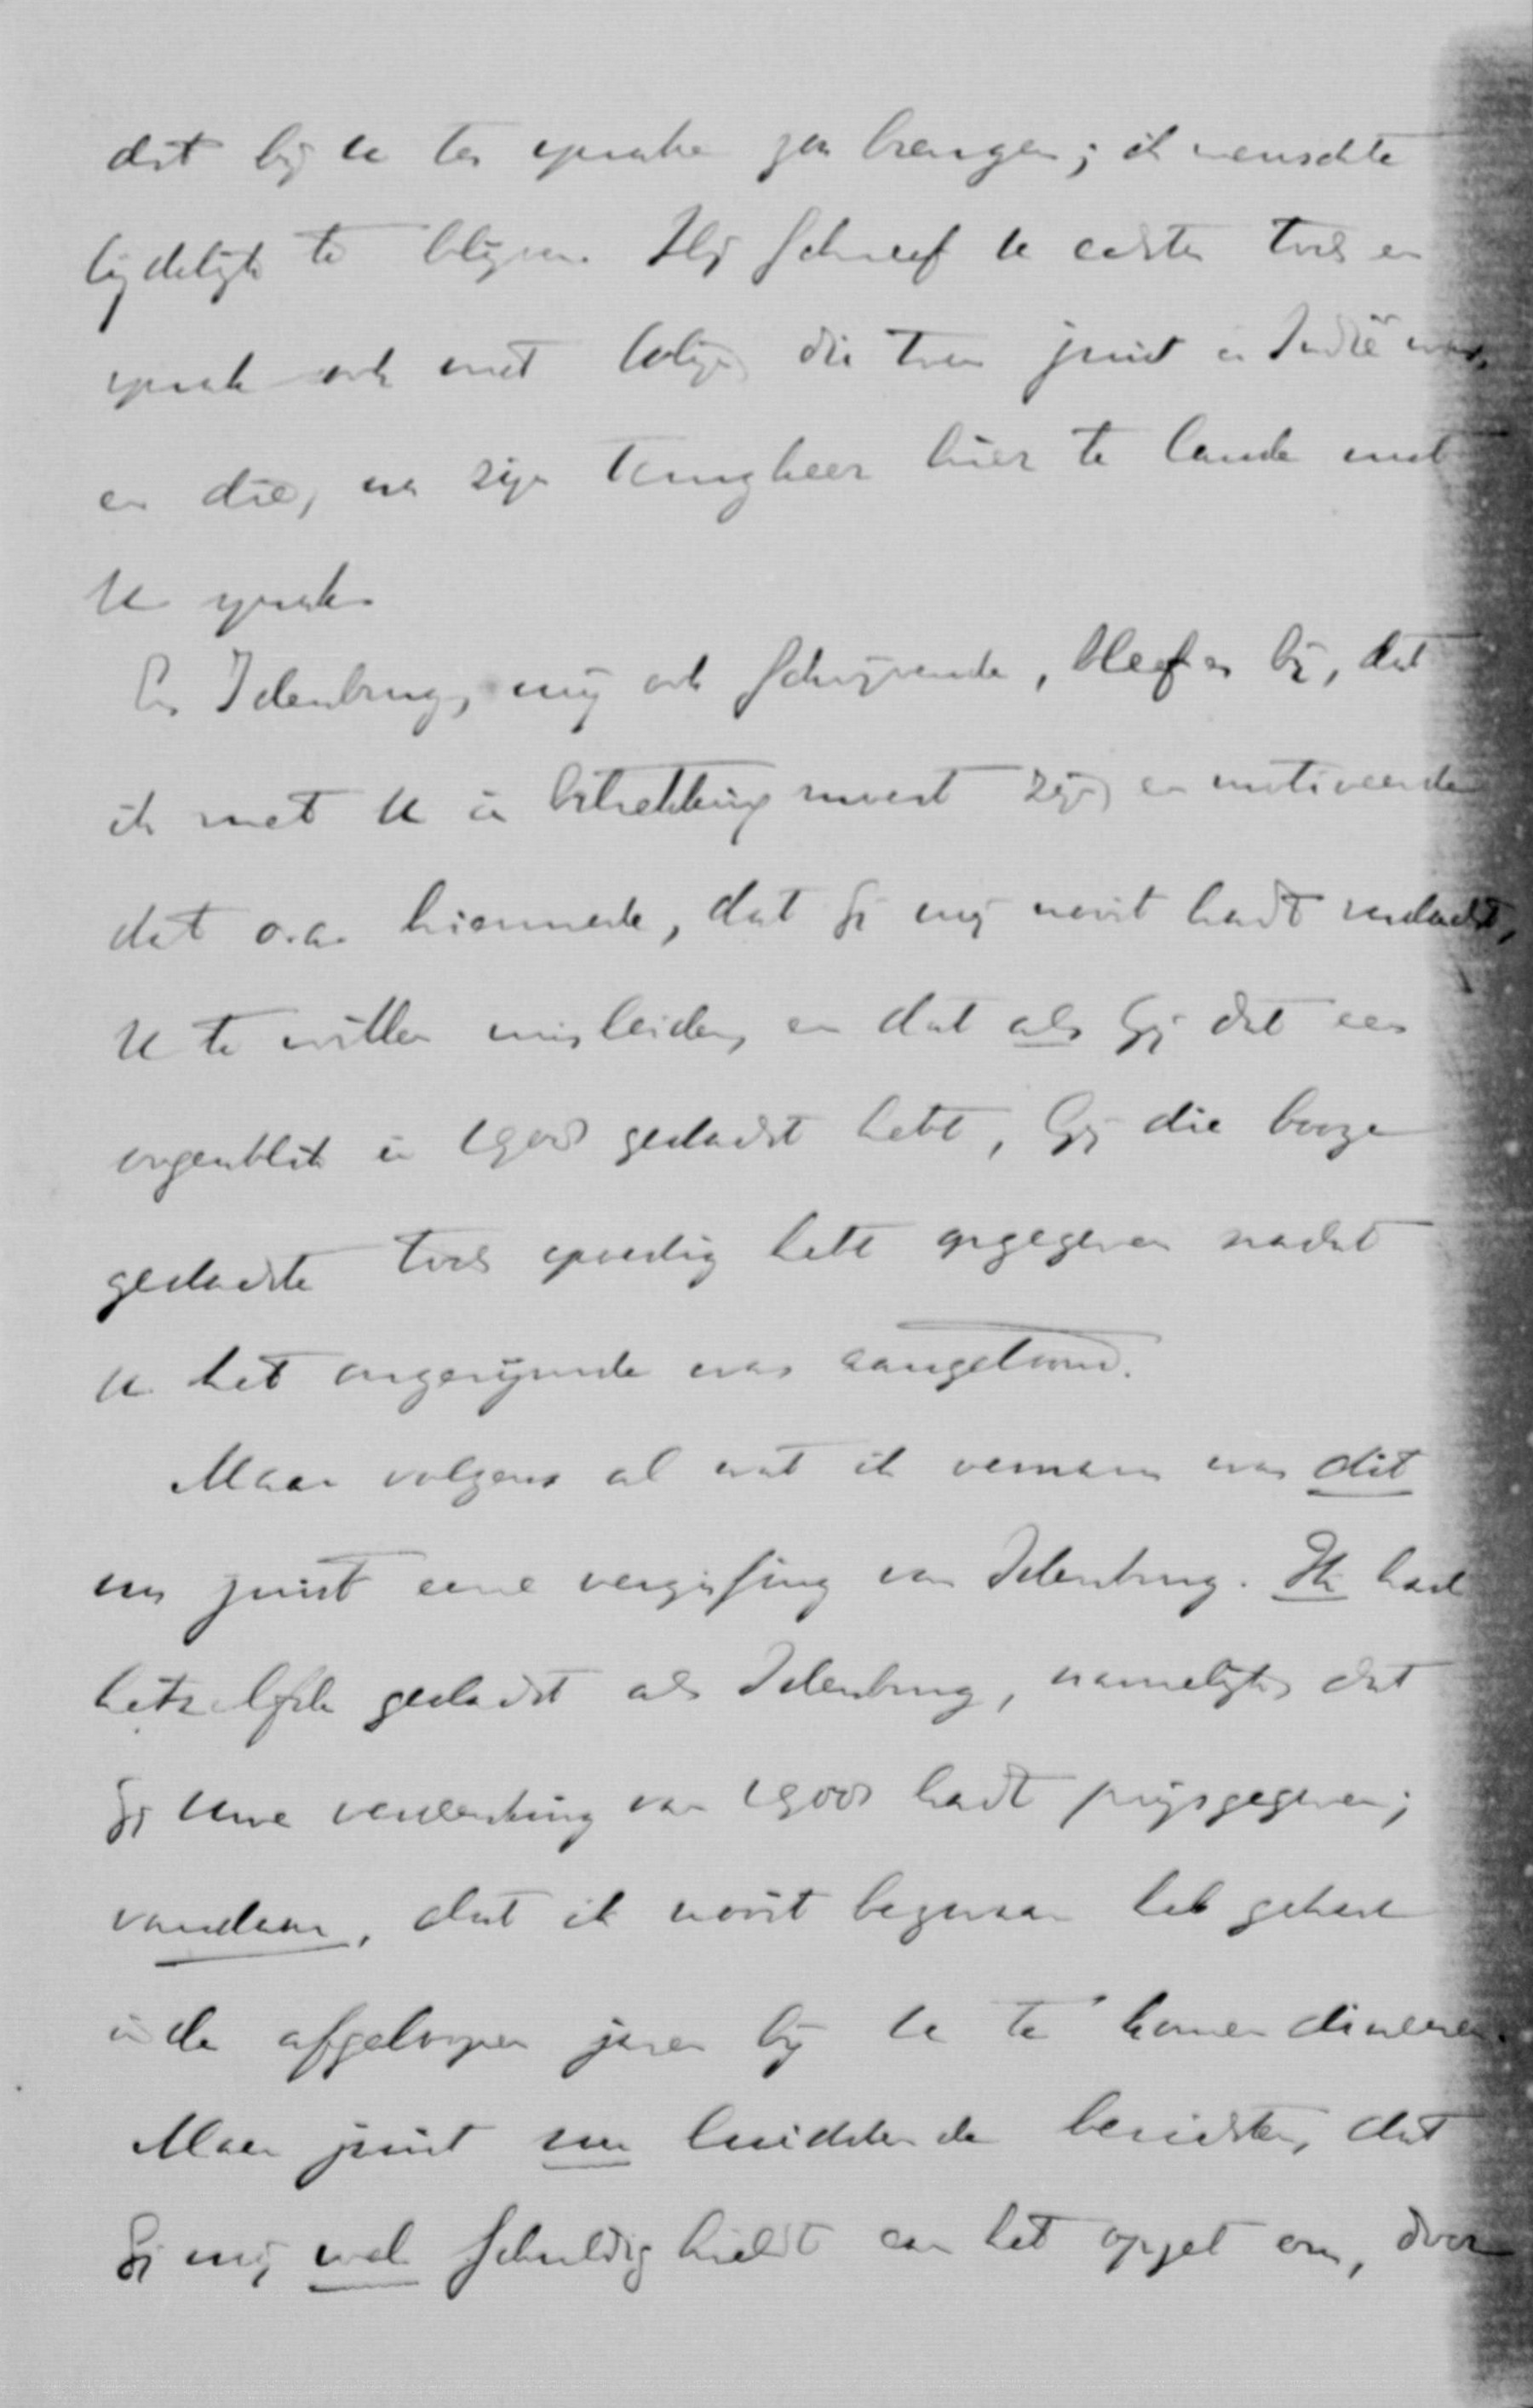 dit bij U ter sprake zou brengen; ik wenschte
lijdelijk te blijven. Hij schreef U echter toch en
sprak ook met Colijn die toen juist in Indië was,
en die, na zijn terugkeer hier te lande met
U sprak.
En Idenburg, mij ook schrijvende, bleef er bij, dat
ik met U in betrekking moest zijn, en motiveerde
dat o.a. hiermede, dat Gij mij nooit hadt verdacht,
U te willen misleiden, en dat als Gij dat een
oogenblik in 1908 gedacht hebt, Gij die booze
gedachte toch spoedig hebt opgegeven nadat
U het ongerijmde was aangetoond.
Maar volgens al wat ik vernam was dit
nu juist eene vergissing van Idenburg. Ik had
hetzelfde gedacht als Idenburg, namelijk dat
Gij Uwe verdenking van 1908 hadt prijsgegeven;
vandaar, dat ik nooit bezwaar heb gehad
in de afgeloopen jaren bij U te komen dineeren.
Maar juist nu luidden de berichten, dat
Gij mij wel schuldig hieldt aan het opzet om, door